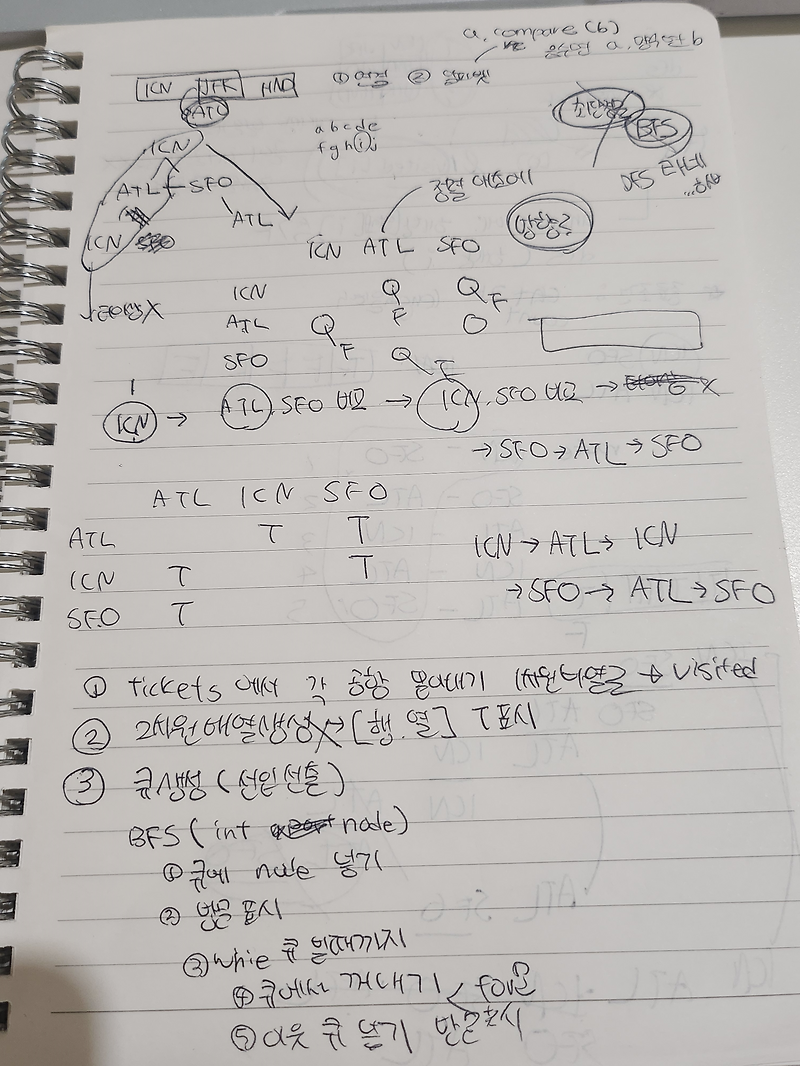 a.compare(b)
음수면 a, 양수면 b
ICN JFK HND ① 연결 ② 알파벳
ATL
a b c d e
f g h i j
최단경로
BFS
DFS
ICN
ATL SFO
ATL
ICN
정렬
방향?
ICN ATL SFO
ICN Q Q F
F
ATL Q F O
SFO Q F
ICN → ATL, SFO 비교 → ICN, SFO 비교 → X
→ SFO → ATL → SFO
ATL ICN SFO
ATL T T
ICN T T
SFO T
ICN → ATL → ICN
→ SFO → ATL → SFO
① tickets 에서 각 공항 뽑아내기 1차원배열로 → visited
② 2차원배열생성 → [행, 열] T 표시
③ 큐생성 (선입선출)
BFS ( int node)
① 큐에 node 넣기
② 방문 표시
③ while 큐 빌때까지
④ 큐에서 꺼내기 for문
⑤ 이웃 큐 넣기 방문표시